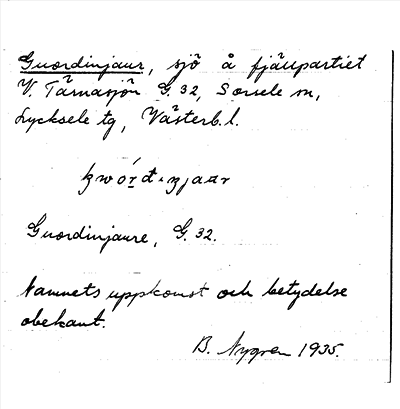 Guordinjaur, sjö å fjällpartiet
V. Tärnasjön G. 32, Sorsele sn,
Lycksele tg, Västerb. l.
Guordinjaure, G. 32.
Namnets uppkomst och betydelse
obekant.
B. Nygren 1935.